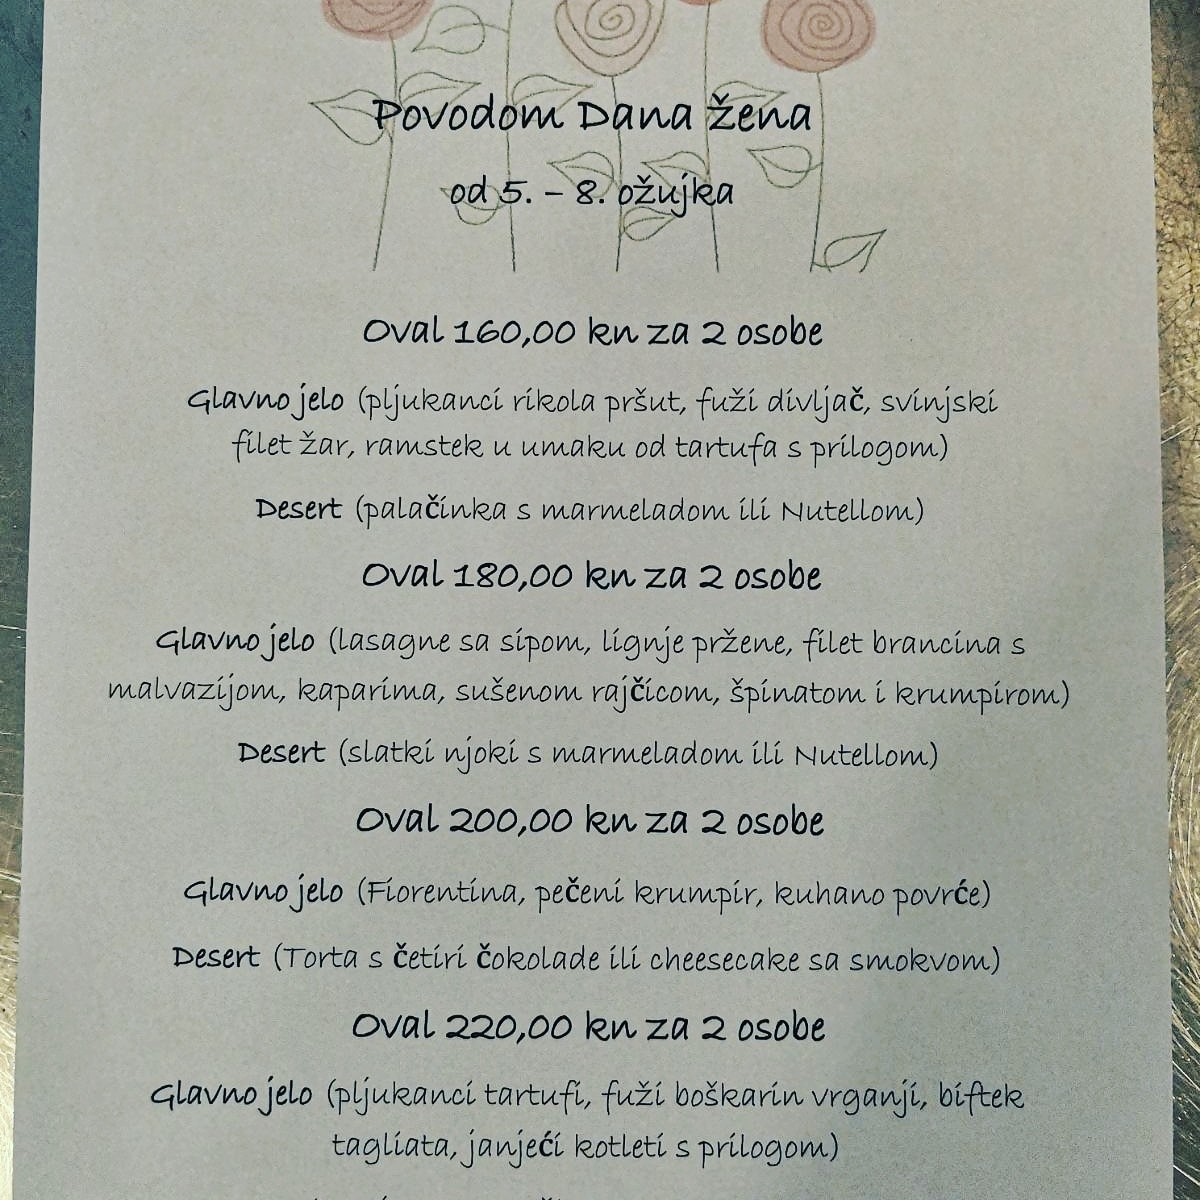 Povodom Dana žena
od 5. – 8. ožujka
Oval 160,00 kn za 2 osobe
Glavno jelo (pljukanci rikola pršut, fuži divljač, svinjski
filet žar, ramstek u umaku od tartufa s prilogom)
Desert (palačinka s marmeladom ili Nutellom)
Oval 180,00 kn za 2 osobe
Glavno jelo (lasagne sa sipom, lignje pržene, filet brancina s
malvazijom, kaparima, sušenom rajčicom, špinatom i krumpirom)
Desert (slatki njoki s marmeladom ili Nutellom)
Oval 200,00 kn za 2 osobe
Glavno jelo (Fiorentina, pečeni krumpir, kuhano povrće)
Desert (Torta s četiri čokolade ili cheesecake sa smokvom)
Oval 220,00 kn za 2 osobe
Glavno jelo (pljukanci tartufi, fuži boškarin vrganji, biftek
tagliata, janjeći kotleti s prilogom)